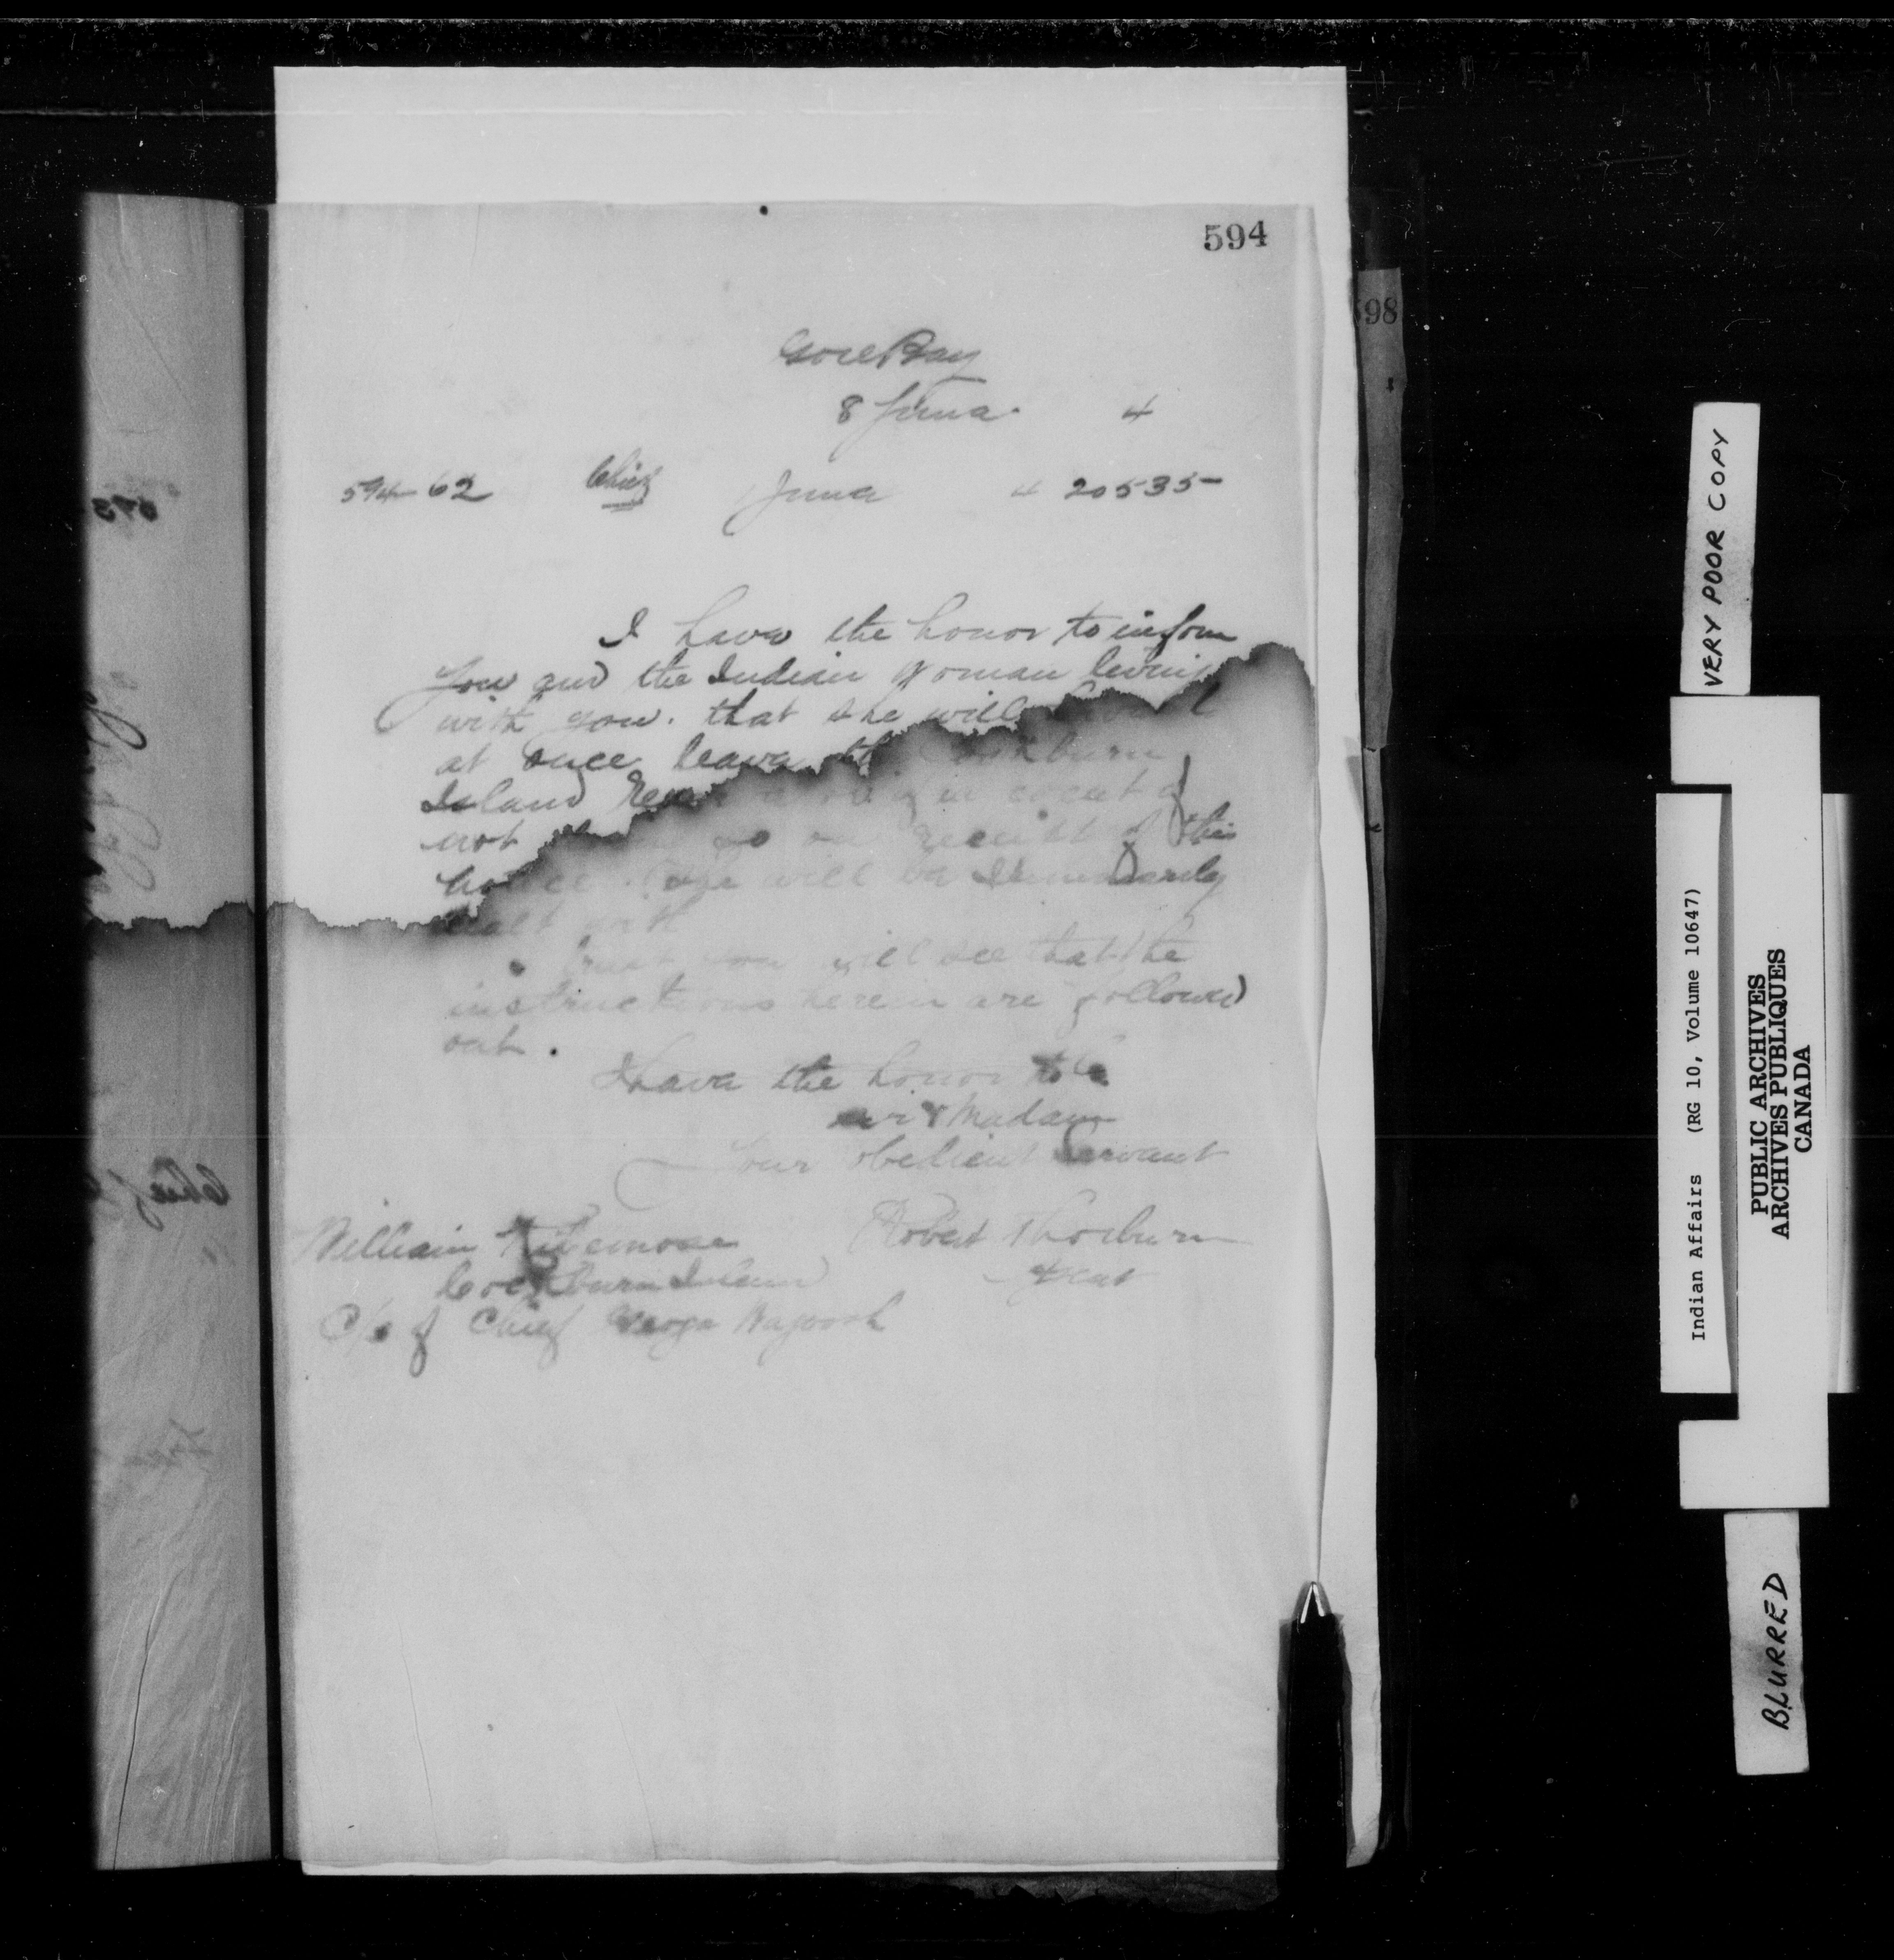 594
Gore Bay
8 June 4
594-62 Chief June 4 20535-
I have the honor to inform
you and the Indian woman living
with you. that she will
at once leave the Cockburn
Island in event of
not so on receipt of this
notice. she will be
dealt with
trust you will see that the
instructions herein are followed
out.
I have the honor to be
Sir & Madam
Your obedient Servant
William
Robert Thorburn
Cockburn Island
Agent
C/o of Chief George
598
VERY POOR COPY
Indian Affairs (RG 10, Volume 10647)
PUBLIC ARCHIVES
ARCHIVES PUBLIQUES
CANADA
BLURRED